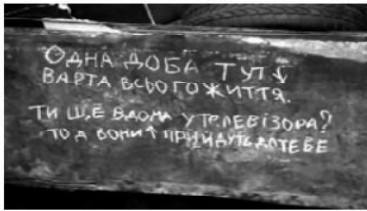 ОДНА ДОБА ТУТ↓
ВАРТА ВСЬОГО ЖИТТЯ.
ТИ ЩЕ ВДОМА У ТЕЛЕВІЗОРА?
ТОДІ ВОНИ↑ ПРИЙДУТЬ ДО ТЕБЕ